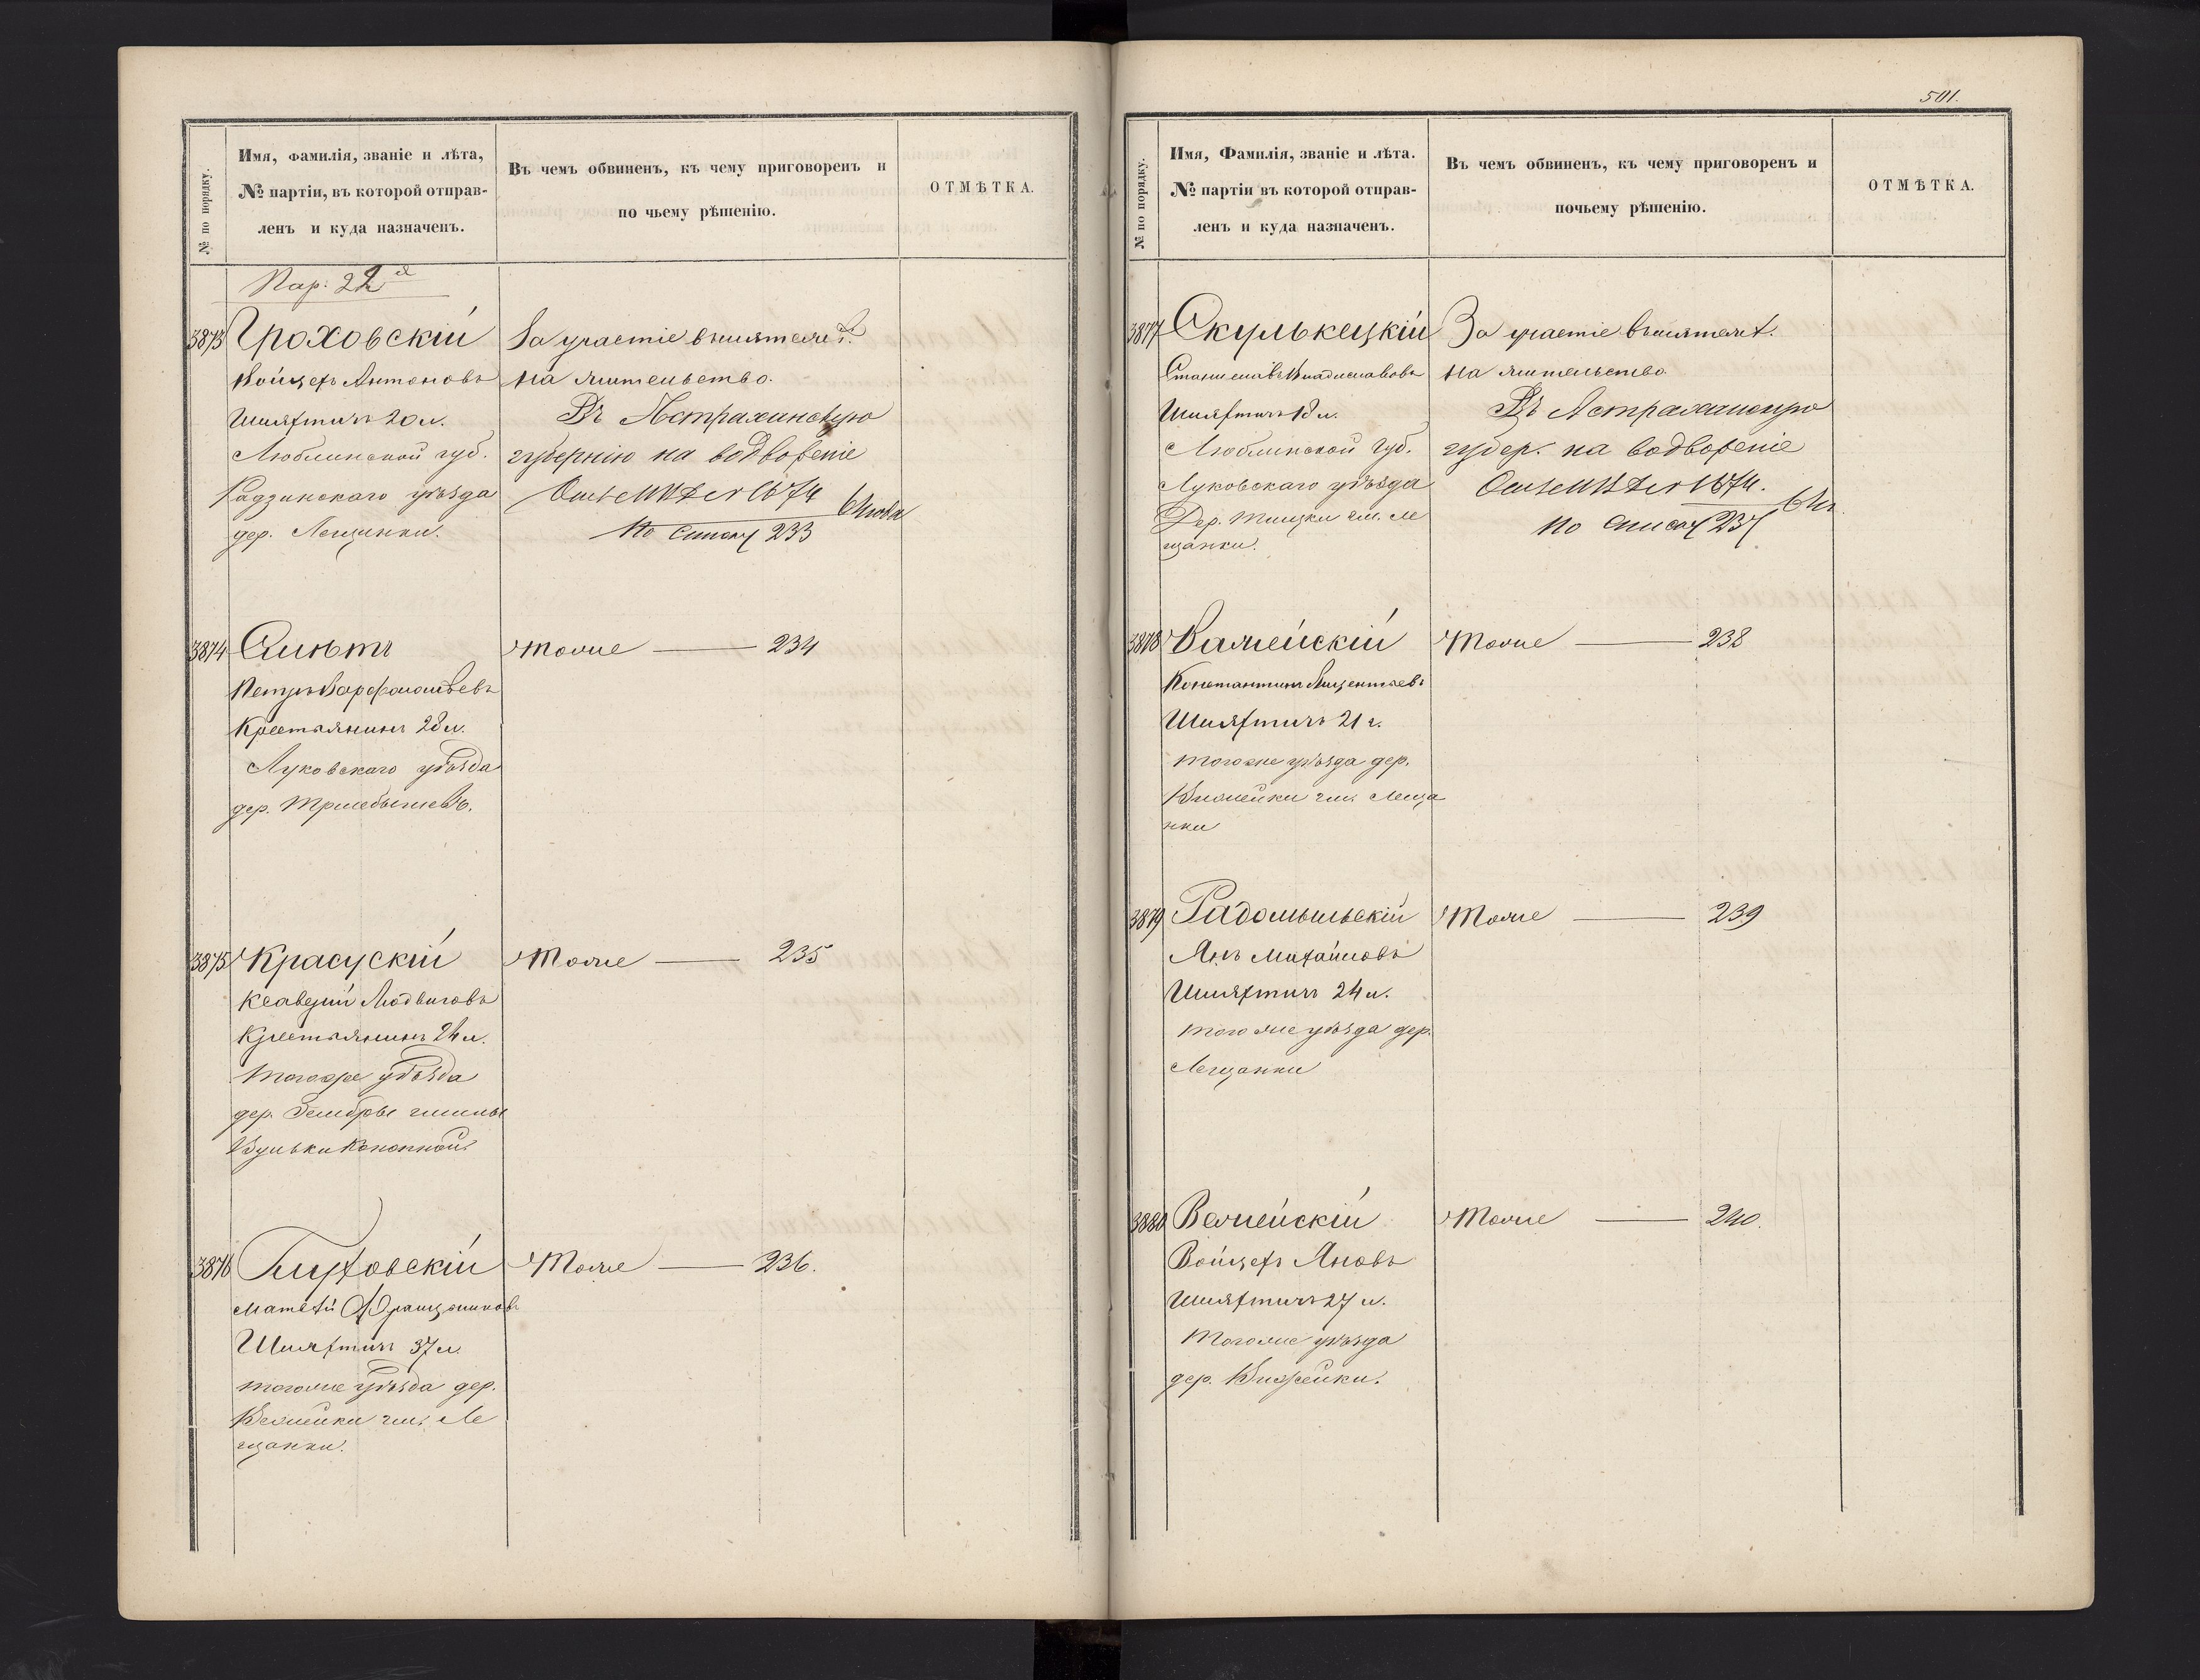 № по порядку.
Имя, Фамилія, званіе и лѣта,
№ партіи, въ которой отправ-
ленъ и куда назначенъ.
Въ чемъ обвиненъ, къ чему приговоренъ и
по чьему рѣшенію.
ОТМѢТКА.
Пар: 22я
3873
Гроховскій
Войцех Антоновъ
Шляхтичъ 20 л.
Люблинской губ.
Радзинскаго уѣзда
дер. Лещанки.
За участіе въ мятежѣ
на жительство.
Въ Астраханскую
губернію на водвореніе
По списку 233
3874
Петръ Варфоломѣевъ
Крестьянинъ 28 л.
Луковскаго уѣзда
Тоже — 234
3875
Красускій
Ксаверій Людвиговъ
Крестьянинъ 24 л.
тогоже уѣзда
дер. Зембры гмины
Вульки Конопной
Тоже — 235
3876
Матеѣй Францишковъ
Шляхтичъ 37 л.
тогоже уѣзда дер.
гм. Ле
щанки.
Тоже — 236.
501.
№ по порядку.
Имя, Фамилія, званіе и лѣта.
№ партіи въ которой отправ-
ленъ и куда назначенъ.
Въ чемъ обвиненъ, къ чему приговоренъ и
почьему рѣшенію.
ОТМѢТКА.
3877
Скулькецкій
Станиславъ Владиславовъ
Шляхтичъ 18 л.
Люблинской Губ.
Луковскаго уѣзда
Дер. гм. Ле
щанки.
За участіе въ мятежѣ.
на жительство
Въ Астраханскую
губер. на водвореніе
По списку 237
3878
Важейскій
Константинъ
Шляхтичъ 21 г.
тогоже уѣзда дер.
гм. Леща
нки
Тоже — 238
3879
Радомыльскій
Янъ Михайловъ
Шляхтичъ 24 л.
того же уѣзда дер.
Лещанки
Тоже — 239
3880
Вежейскій
Войцехъ Яновъ
Шляхтичъ 27 л.
Тогоже уѣзда
дер.
Тоже — 240.